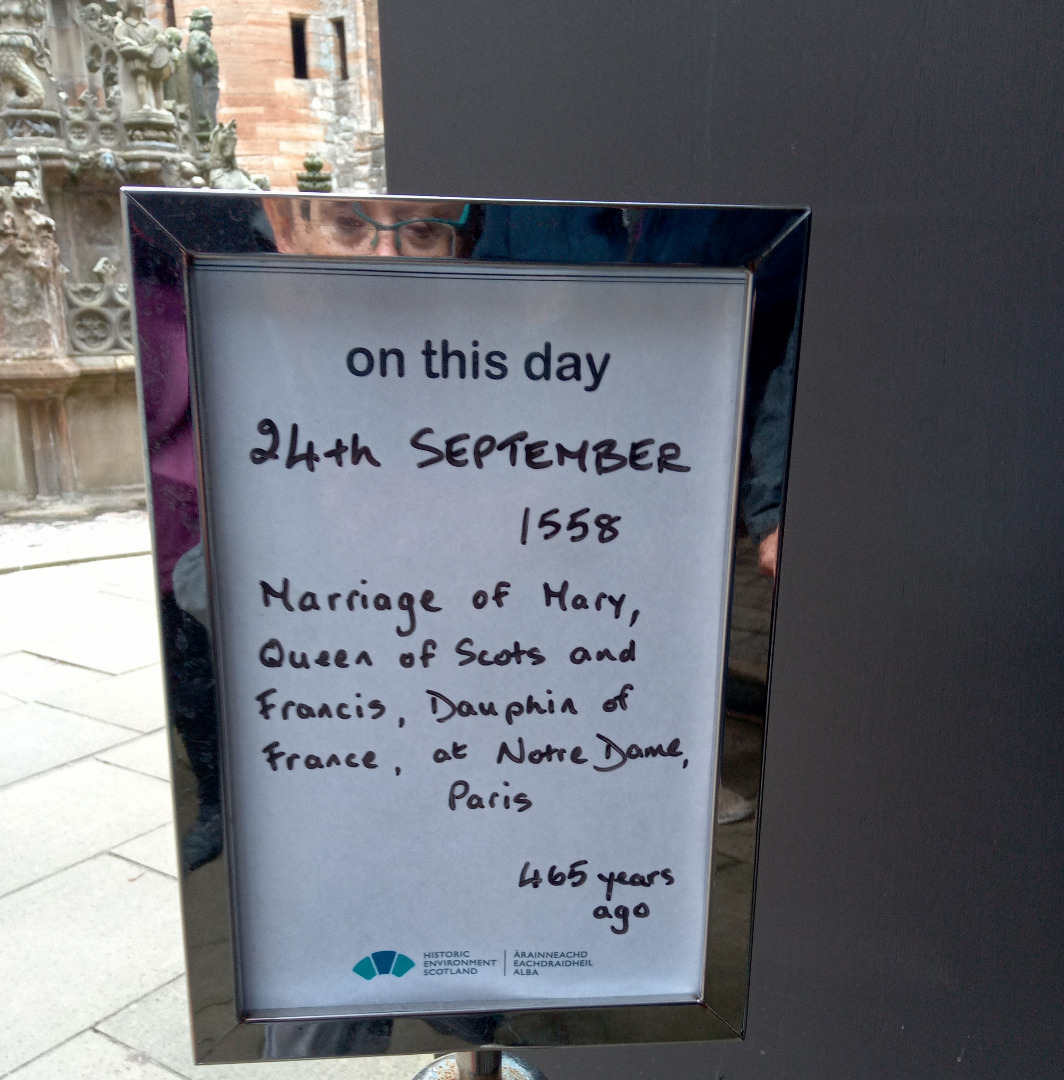 on this day
24th SEPTEMBER
1558
Marriage of Mary,
Queen of Scots and
Francis, Dauphin of
France, at Notre Dame,
Paris
465 years
ago
HISTORIC
ENVIRONMENT
SCOTLAND
ÀRAINNEACHD
EACHDRAIDHEIL
ALBA